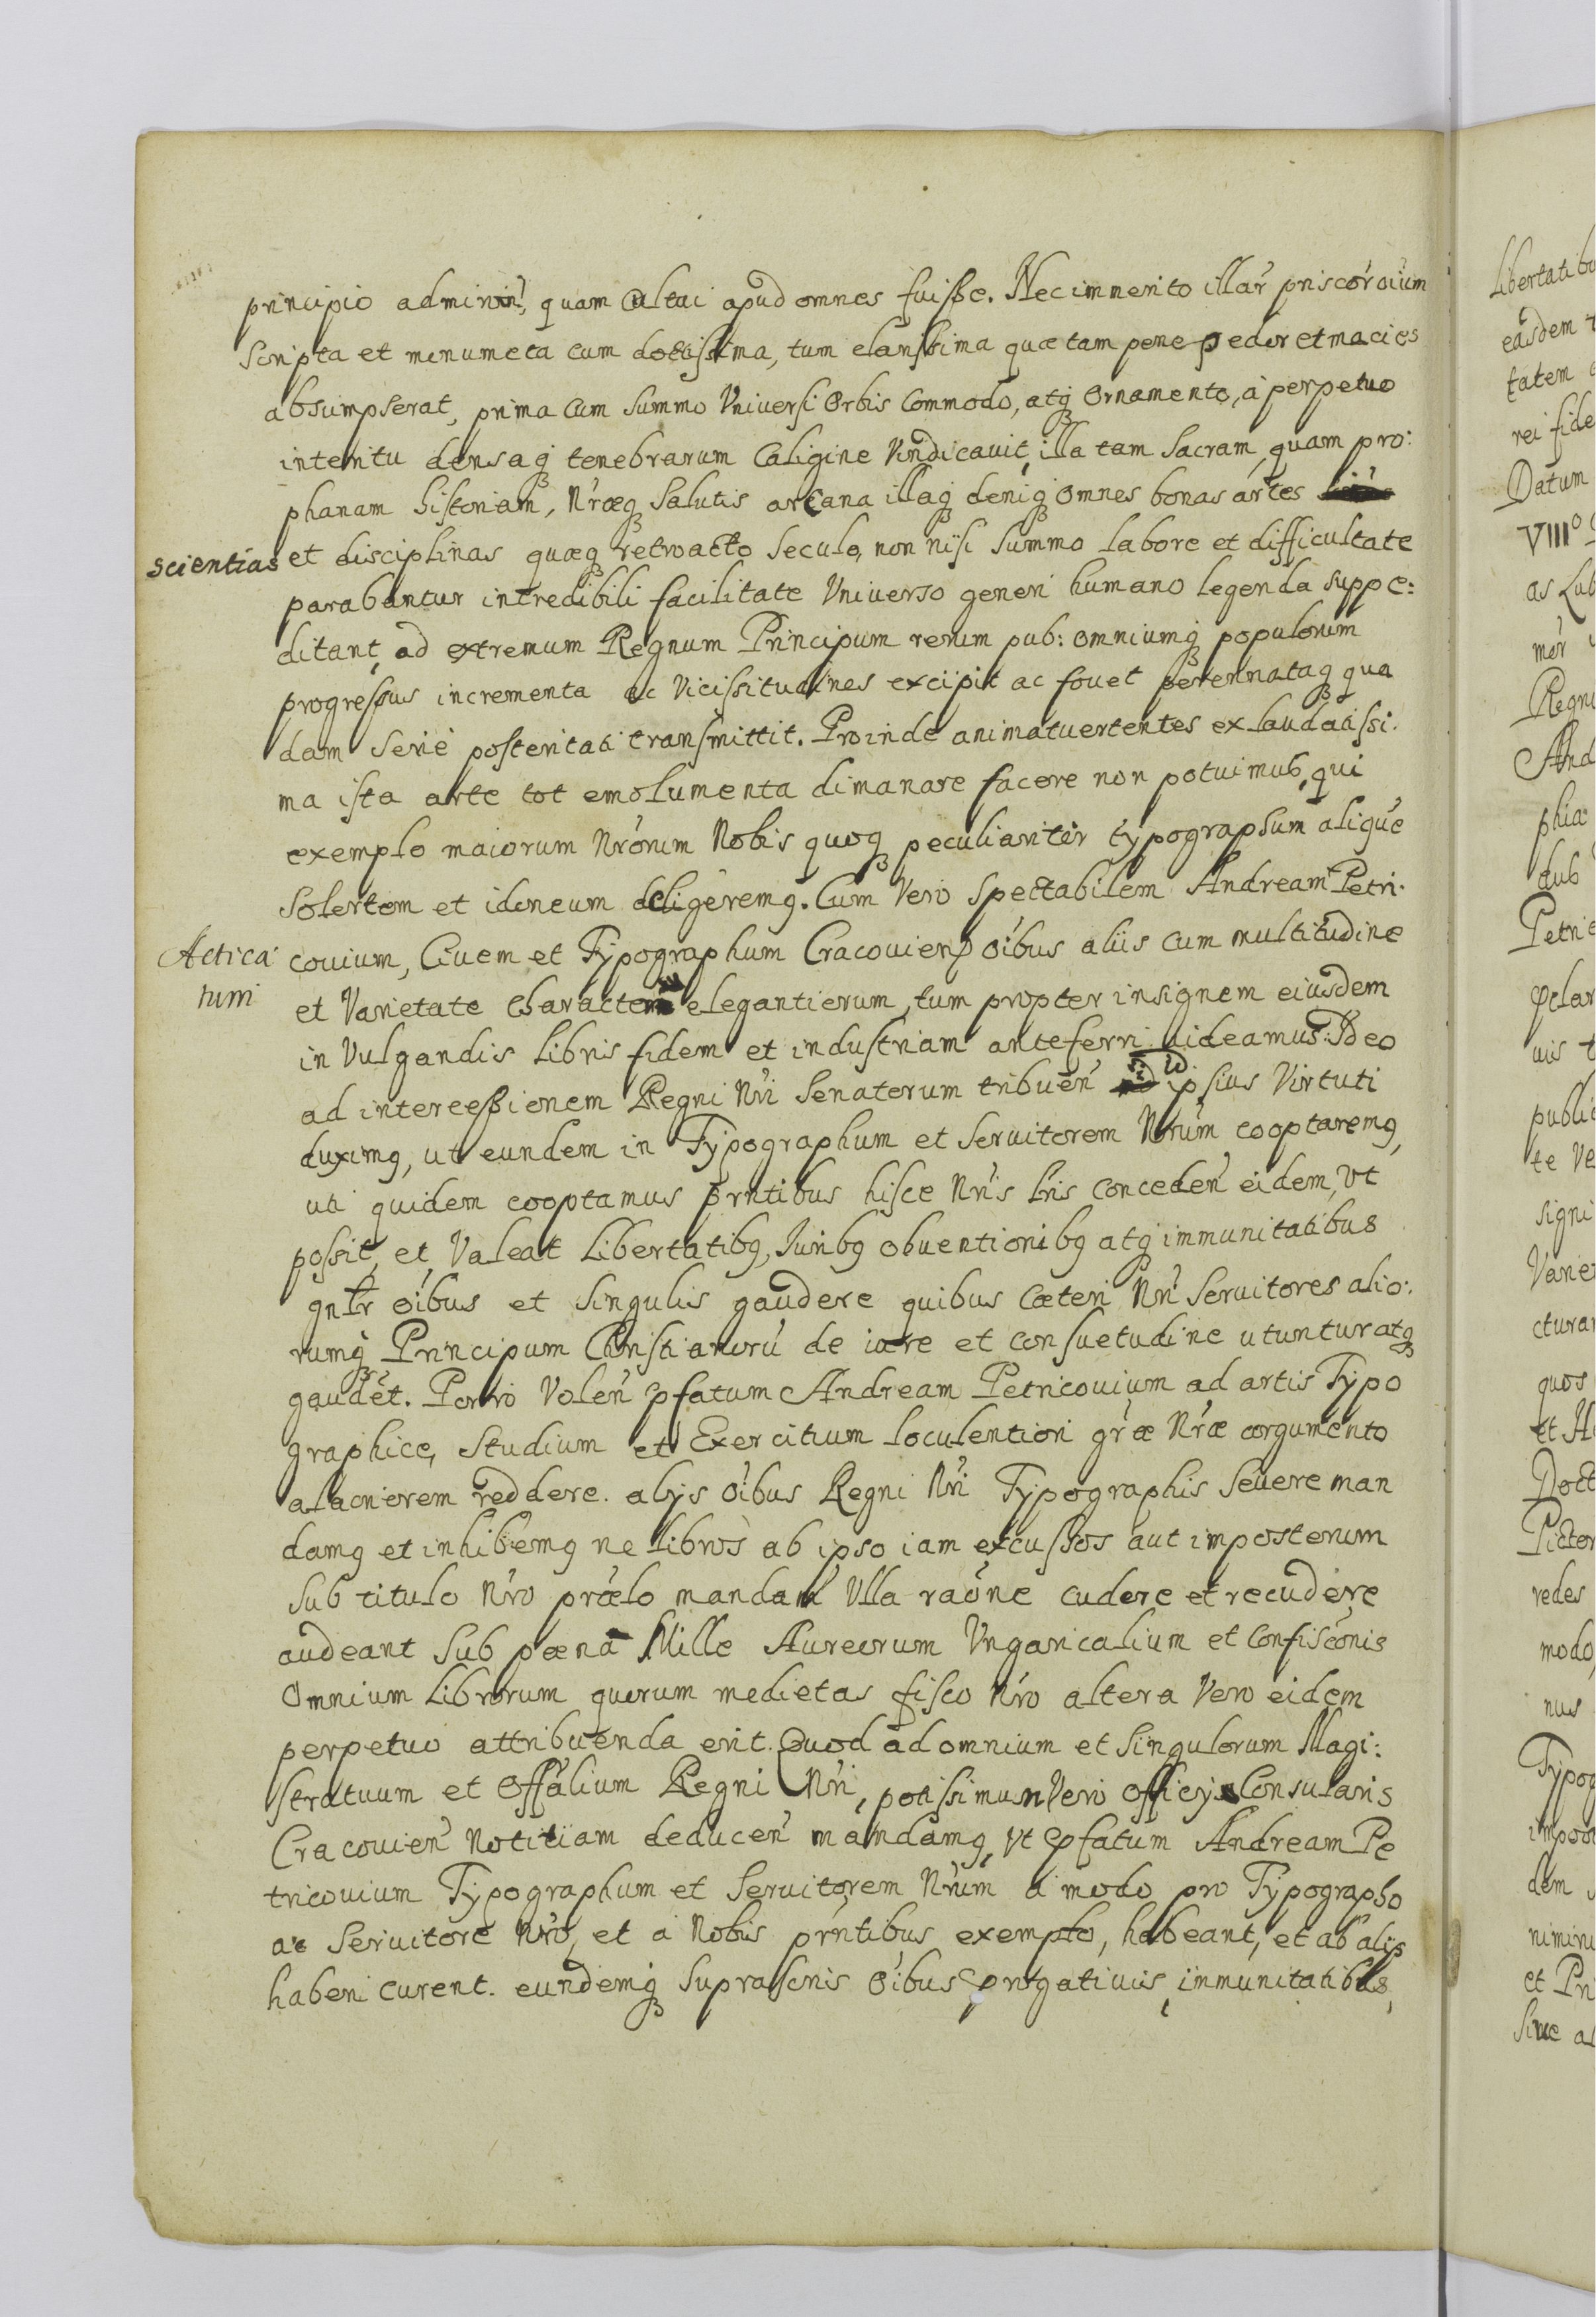 principio admirōni, quam Cultui apud omnes fuiſſe. Nec immerito illar̃ priscor̃ oium
Scripta et monumēta cum doctiſſima, tum clariſſima quæ tam pene pedor et macies
absumpserat, prima cum summo Vniuersi Orbis Commodo, atq Ornamento, à perpetuo
interitu densaq tenebrarum Caligine Vindicauit, illa tam Sacram, quam pro:
phanam historiam, Nræq Salutis arcana illaq deniq omnes bonas artes
scientias et disciplinas quæq retroacto Seculo, non nisi Summo labore et difficultate
parabantur incredibili facilitate Vniuerso generi humano legenda suppe:
ditant, ad extremum Regnum Principum rerum pub: omniumq populorum
progreſſus incrementa ac Vicissitudines excipit ac fouet perennataq qua
dam Serie posteritati transmittit. Proinde animatuertentes ex laudatissi:
ma ista arte tot emolumenta dimanare facere non potuimus, qui
exemplo maiorum Nrorum Nobis quoq peculiariter typographum aliquē
Solertem et idoneum deligeremq. Cum Vero Spectabilem Andream Petri:
couium, Ciuem et Typographum Cracouien̄ oibus aliis cum multitudine
Actica
rum
et Varietate Character elegantiorum, tum propter insignem eiusdem
in Vulgandis Libris fidem et industriam anteferri uideamus. Ideo
ad interceßionem Regni Nri Senatorum tribuen̄ ipsius Virtuti
duximq, ut eundem in Typographum et Seruitorem Nrum cooptaremq,
uti quidem cooptamus pñtibus hisce Nris lris conceden̄ eidem, Vt
possit, et Valeat Libertatibq, Iuribq obuentionibq atq immunitatibus
gnlr oibus et Singulis gaudere quibus Cæteri Nri Seruitores alio:
rumq Principum Christianorū de iure et consuetudine utuntur atq
gaudēt. Porro Volen̄ pfatum Andream Petricouium ad artis Typo
graphice, Studium et Exercitium loculentiori gr̃æ Nræ argumento
alacriorem reddere. alijs oibus Regni Nri Typographis Seuere man
damq et inhibemq ne libros ab ipso iam excuſſos aut imposterum
Sub titulo Nro prælo mandan̄ Vlla raōne cudere et recudere
audeant Sub pæna Mille Aureorum Vngaricalium et Confiscōnis
Omnium Librorum quorum medietas fisco Nro altera Vero eidem
perpetuo attribuenda erit. Quod ad omnium et Singulorum Magi:
stratuum et Offālium Regni Nri, potissimum Vero Officij Consularis
Cracouien̄ Notitiam deducen̄ mandamq, Vt pfatum Andream Pe
tricouium Typographum et Seruitorem Nrum a modo pro Typographo
ac Seruitore Nro, et a Nobis pr̃ntibus exempto, habeant, et ab alijs
haberi curent. eundemq Suprascris oibus prōgatiuis, immunitatibus,
Libertatibu
easdem
tatem
rei fide
Datum
VIII°
as Lub
mor
Regni
And
phia
dub
Petric
publi
te Ve
signi
Variet
cturar
quos
et
Doct
Pictor
redes
modo,
nus
Typog
impost
dem
nimini
et Pri
Siue al